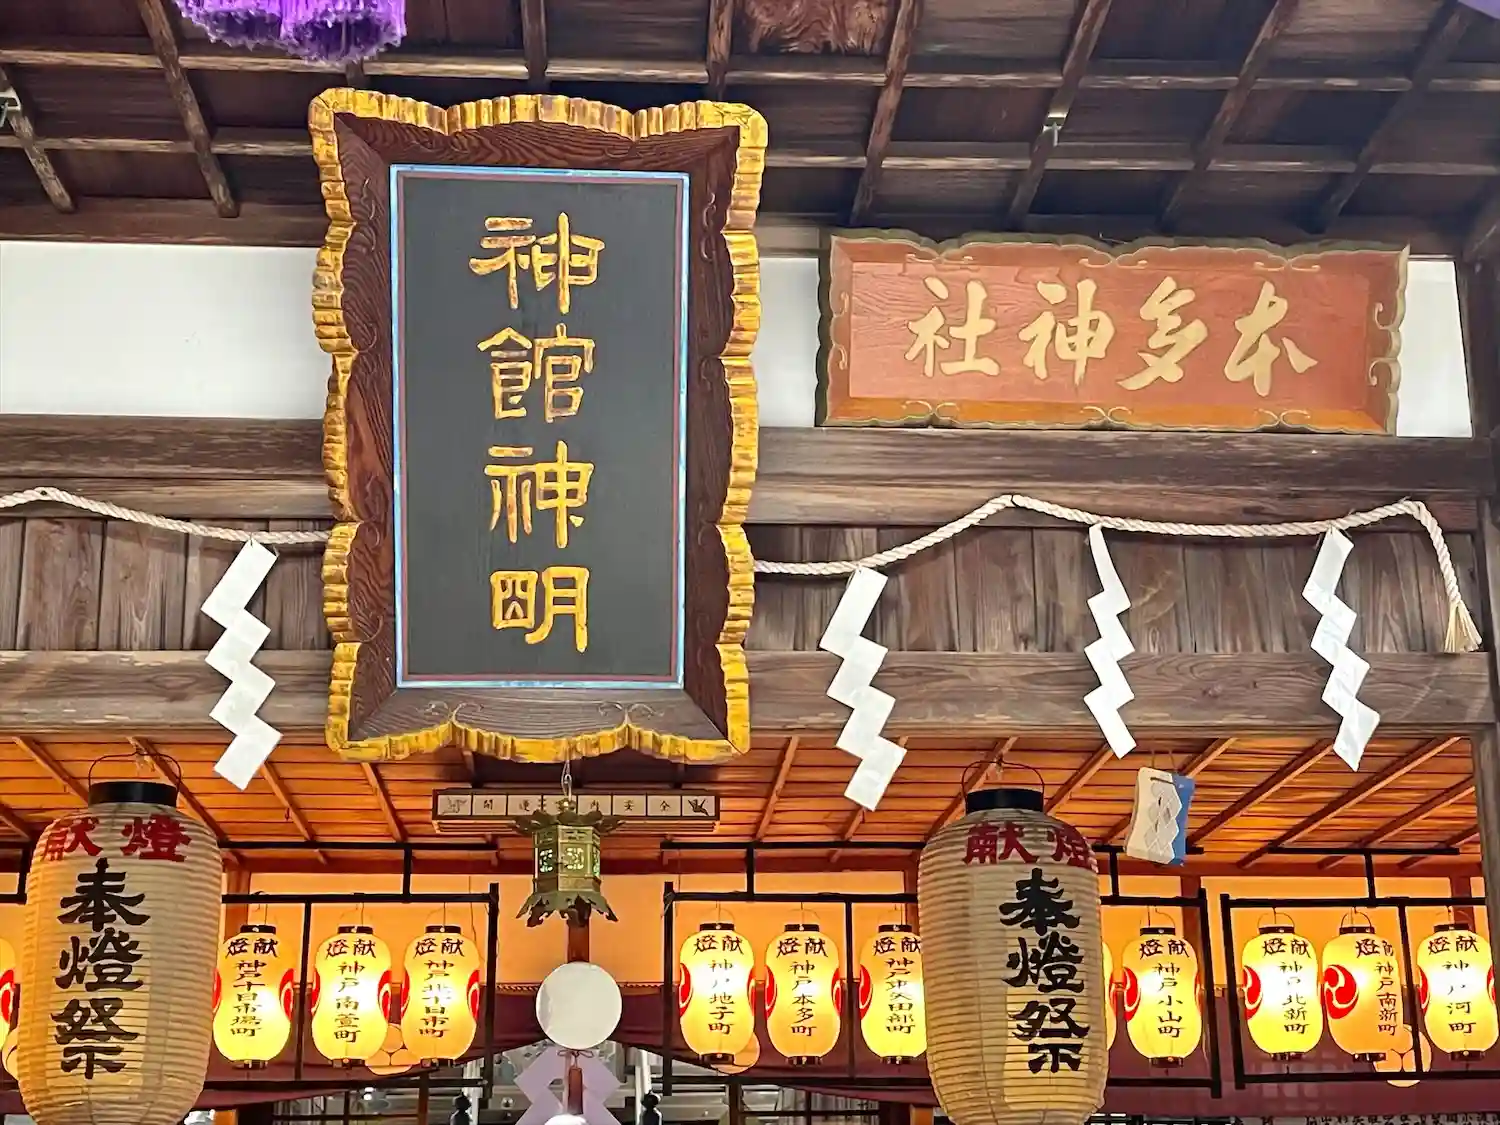 神館神明
本多神社
献燈
奉燈祭
献燈
神戸十日市場町
献燈
神戸南萱町
献燈
神戸北十日市町
献燈
神戸地子町
献燈
神戸本多町
献燈
神戸東矢田部町
献燈
奉燈祭
献燈
神戸小山町
献燈
神戸北新町
献燈
神戸南新町
献燈
神戸河町